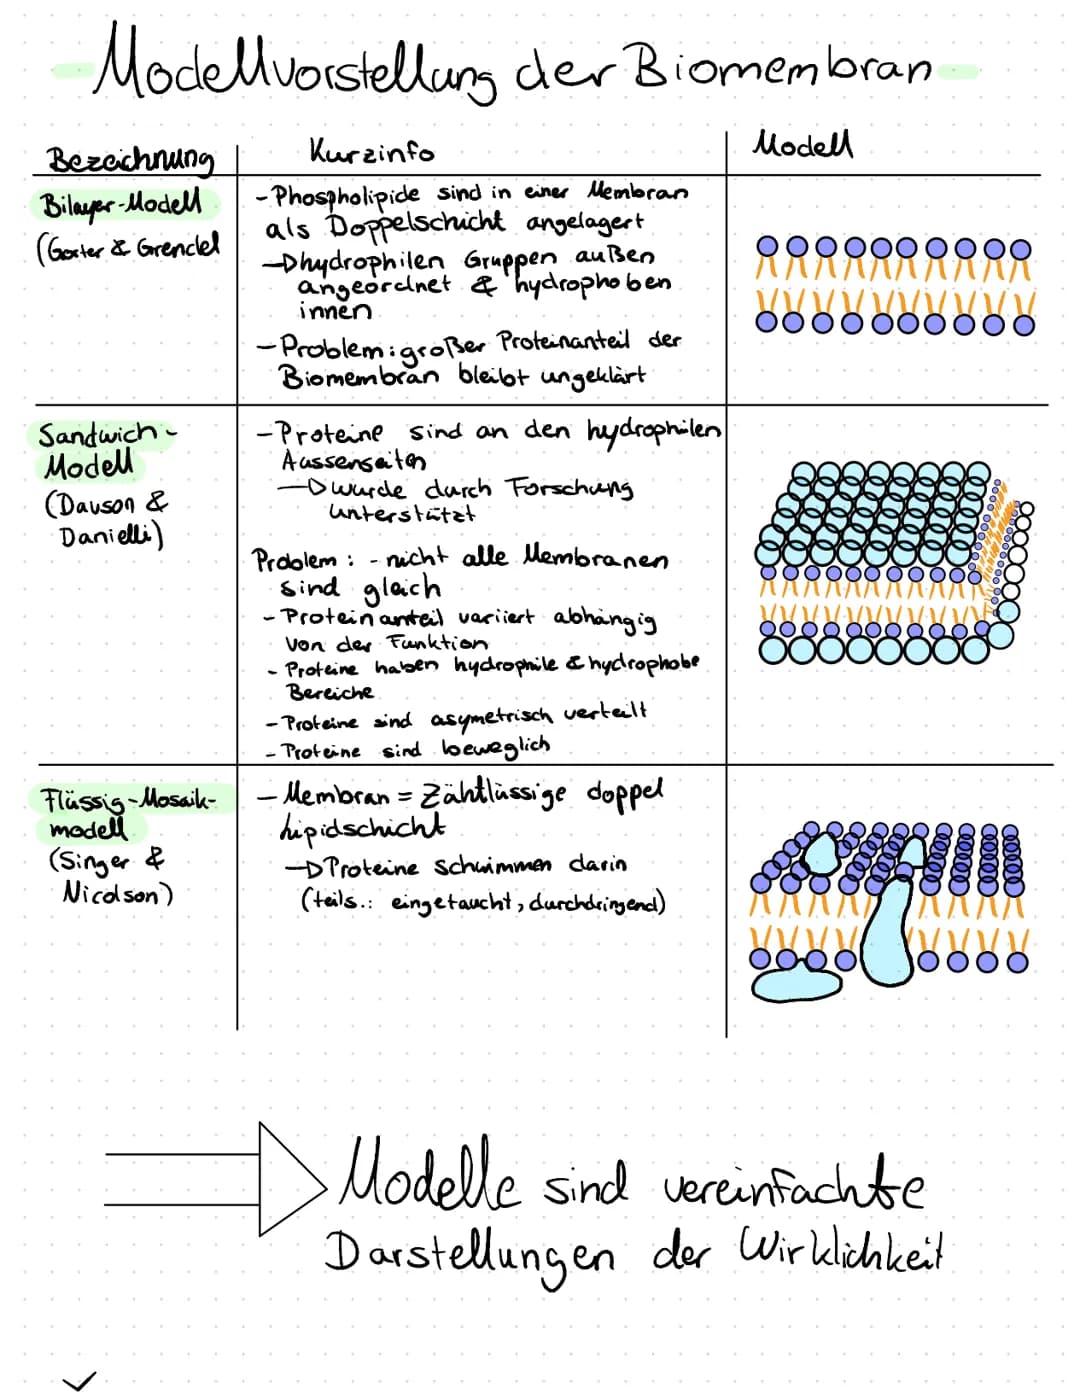 Modellvorstellung der Biomembran
Bezeichnung
Kurzinfo
Modell
Bilayer-Modell
(Gorter & Grendel
- Phospholipide sind in einer Membran
als Doppelschicht angelagert
hydrophilen Gruppen außen
angeordnet & hydrophoben
innen
- Problem: großer Proteinanteil der
Biomembran bleibt ungeklärt
Sandwich-
Modell
(Davson &
Danielli)
- Proteine sind an den hydrophilen
Aussenseiten
wurde durch Forschung
unterstützt
Problem: - nicht alle Membranen
sind gleich
- Proteinanteil variiert abhängig
von der Funktion
- Proteine haben hydrophile & hydrophobe
Bereiche
- Proteine sind asymetrisch verteilt
- Proteine sind beweglich
Flüssig-Mosaik-
modell
(Singer &
Nicolson)
- Membran = Zähflüssige doppel
Lipidschicht
Proteine schwimmen darin
(teils.: eingetaucht, durchdringend)
Modelle sind vereinfachte
Darstellungen der Wirklichkeit